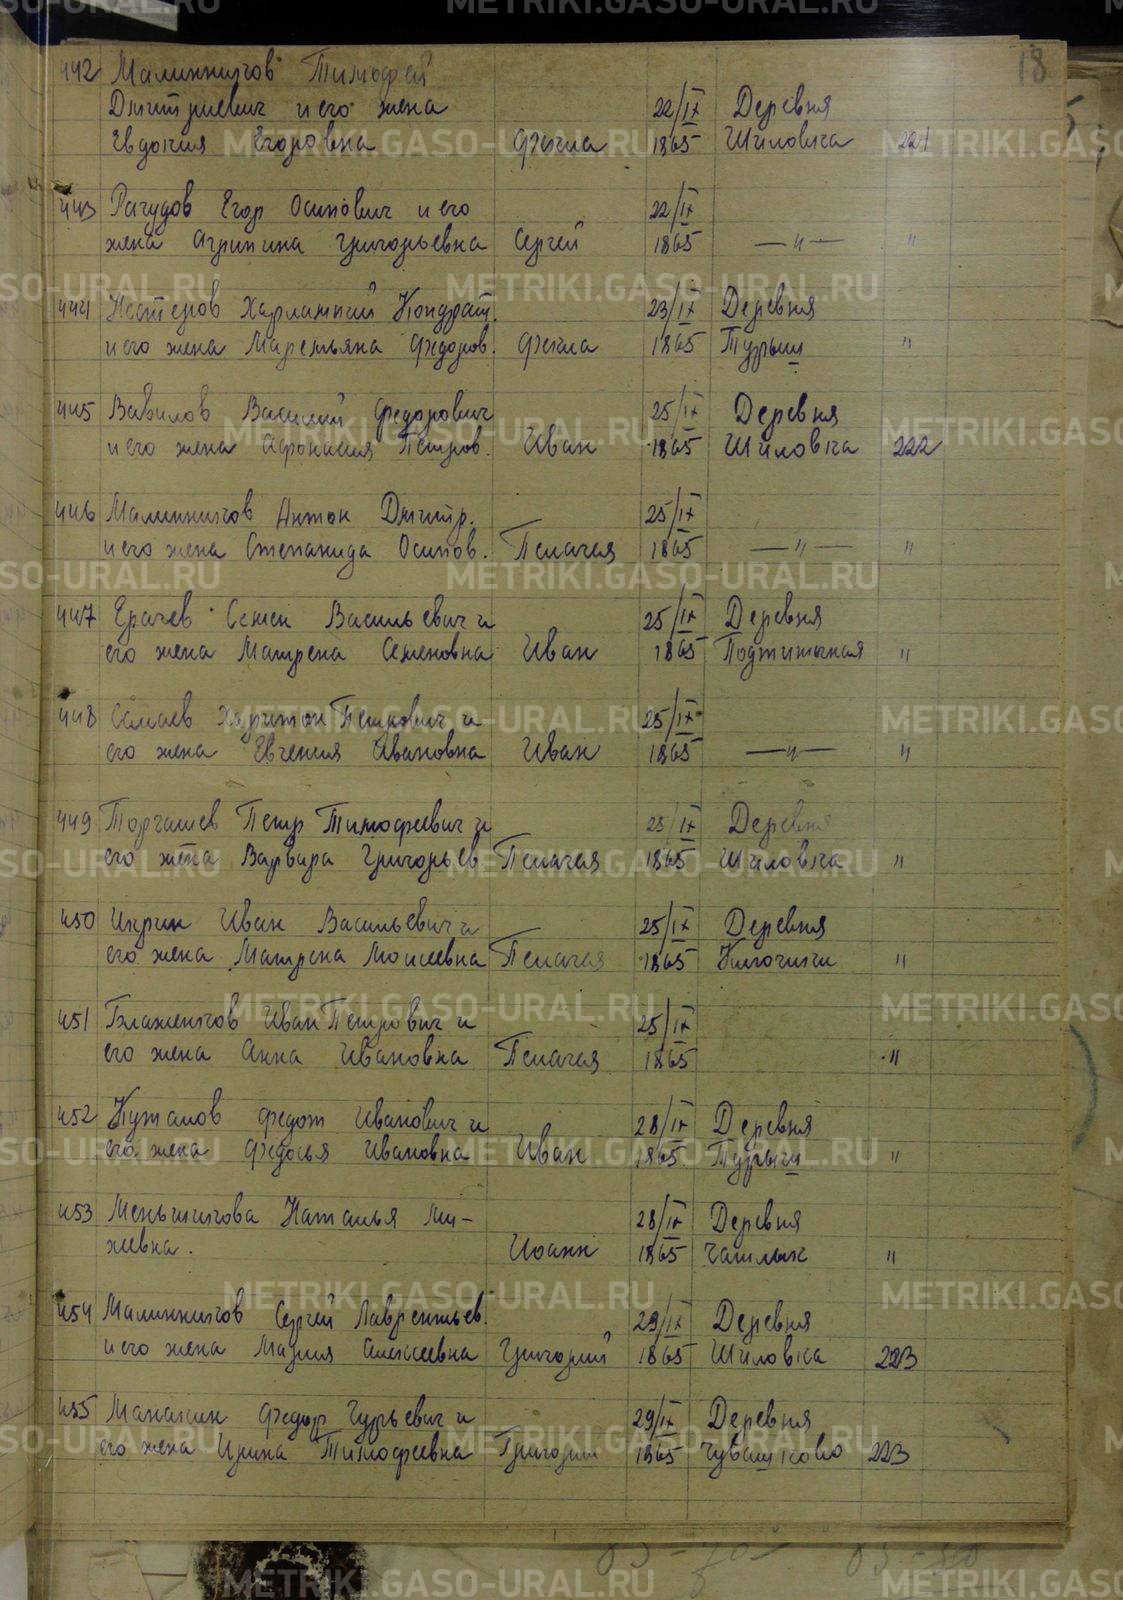 18
442 Малинников Тимофей
Дмитриевич и его жена 22/IX Деревня
Евдокия Егоровна Фекла 1865 Шиловка 221
443 Рагудов Егор Осипович и его 22/IX
жена Агрипина Григорьевна Сергей 1865 —〃— 〃
444 Нестеров Харлампий Кондрат. 23/IX Деревня
и его жена Маремьяна Федоров. Фекла 1865 Турыш 〃
445 Вавилов Василий Федорович 25/IX Деревня
и его жена Афонасия Петров. Иван 1865 Шиловка 222
446 Малинников Антон Дмитр. 25/IX
и его жена Степанида Осипов. Пелагея 1865 —〃— 〃
447 Ерачев Семен Васильевич и 25/IX Деревня
его жена Матрена Семеновна Иван 1865 〃
448 Харитон Петрович и 25/IX
его жена Евгения Ивановна Иван 1865 —〃— 〃
449 Торгашев Петр Тимофеевич и 25/IX Деревня
его жена Варвара Григорьев Пелагея 1865 Шиловка 〃
450 Икрин Иван Васильевич и 25/IX Деревня
его жена Матрена Моисеевна Пелагея 1865 〃
451 Блаженков Иван Петрович и 25/IX
его жена Анна Ивановна Пелагея 1865 〃
452 Федот Иванович и 28/IX Деревня
его жена Федосья Ивановна Иван 1865 Турыш 〃
453 Меньшикова Наталья Ми- 28/IX Деревня
хевна. Иоанн 1865 〃
454 Малинников Сергей Лаврентьев. 29/IX Деревня
и его жена Мария Алексеевна Григорий 1865 Шиловка 223
455 Манакин Федор Гурьевич и 29/IX Деревня
его жена Ирина Тимофеевна Григорий 1865 Чувашково 223
METRIKI.GASO-URAL.RU